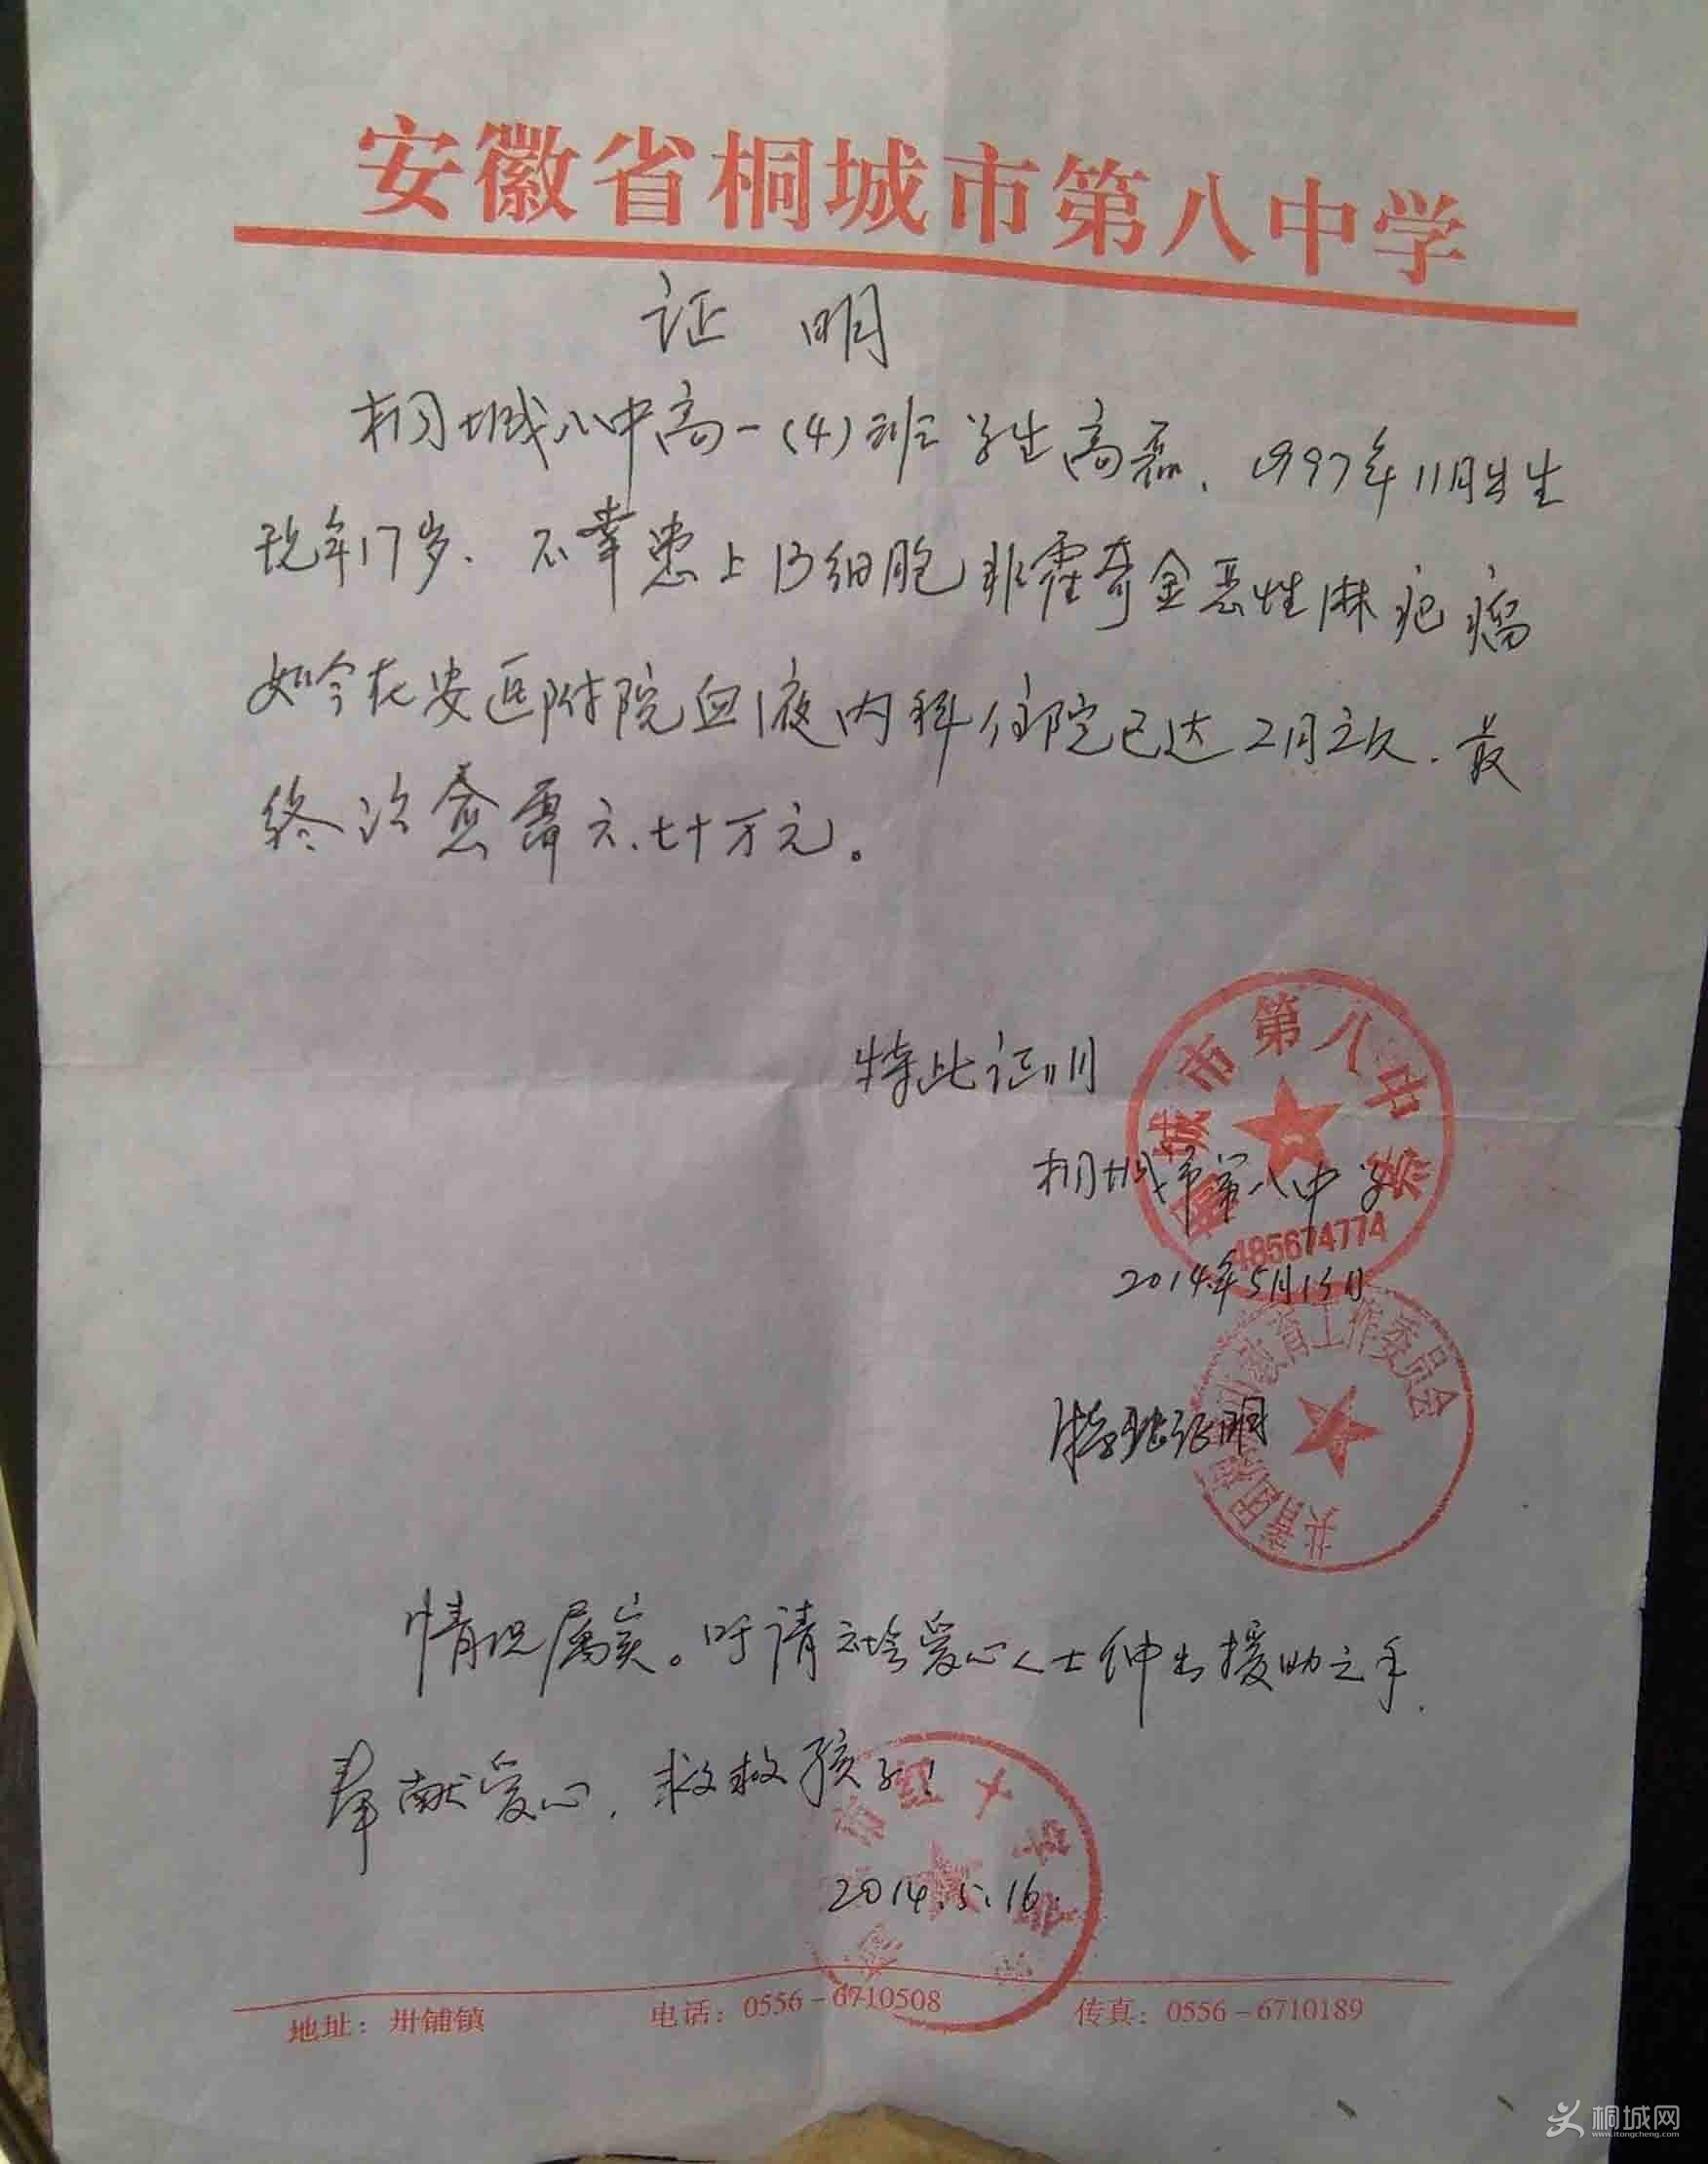 安徽省桐城市第八中学
证 明
桐城八中高一(4)班学生高磊、1997年11月出生
现年17岁、不幸患上B细胞非霍奇金恶性淋疤瘤
如今在安医附院血液内科住院已达2月之久.最
终治愈需六、七十万元。
特此证明
市第八中
桐城市第八中学
485674774
2014年5月15日
教育工作委员会
特此证明
情况属实。吁请社会爱心人士伸出援助之手.
奉献爱心,救救孩子!
市红十字会
2014.5.16.
地址：卅铺镇 电话：0556-6710508 传真：0556-6710189
桐城网
www.itongcheng.com